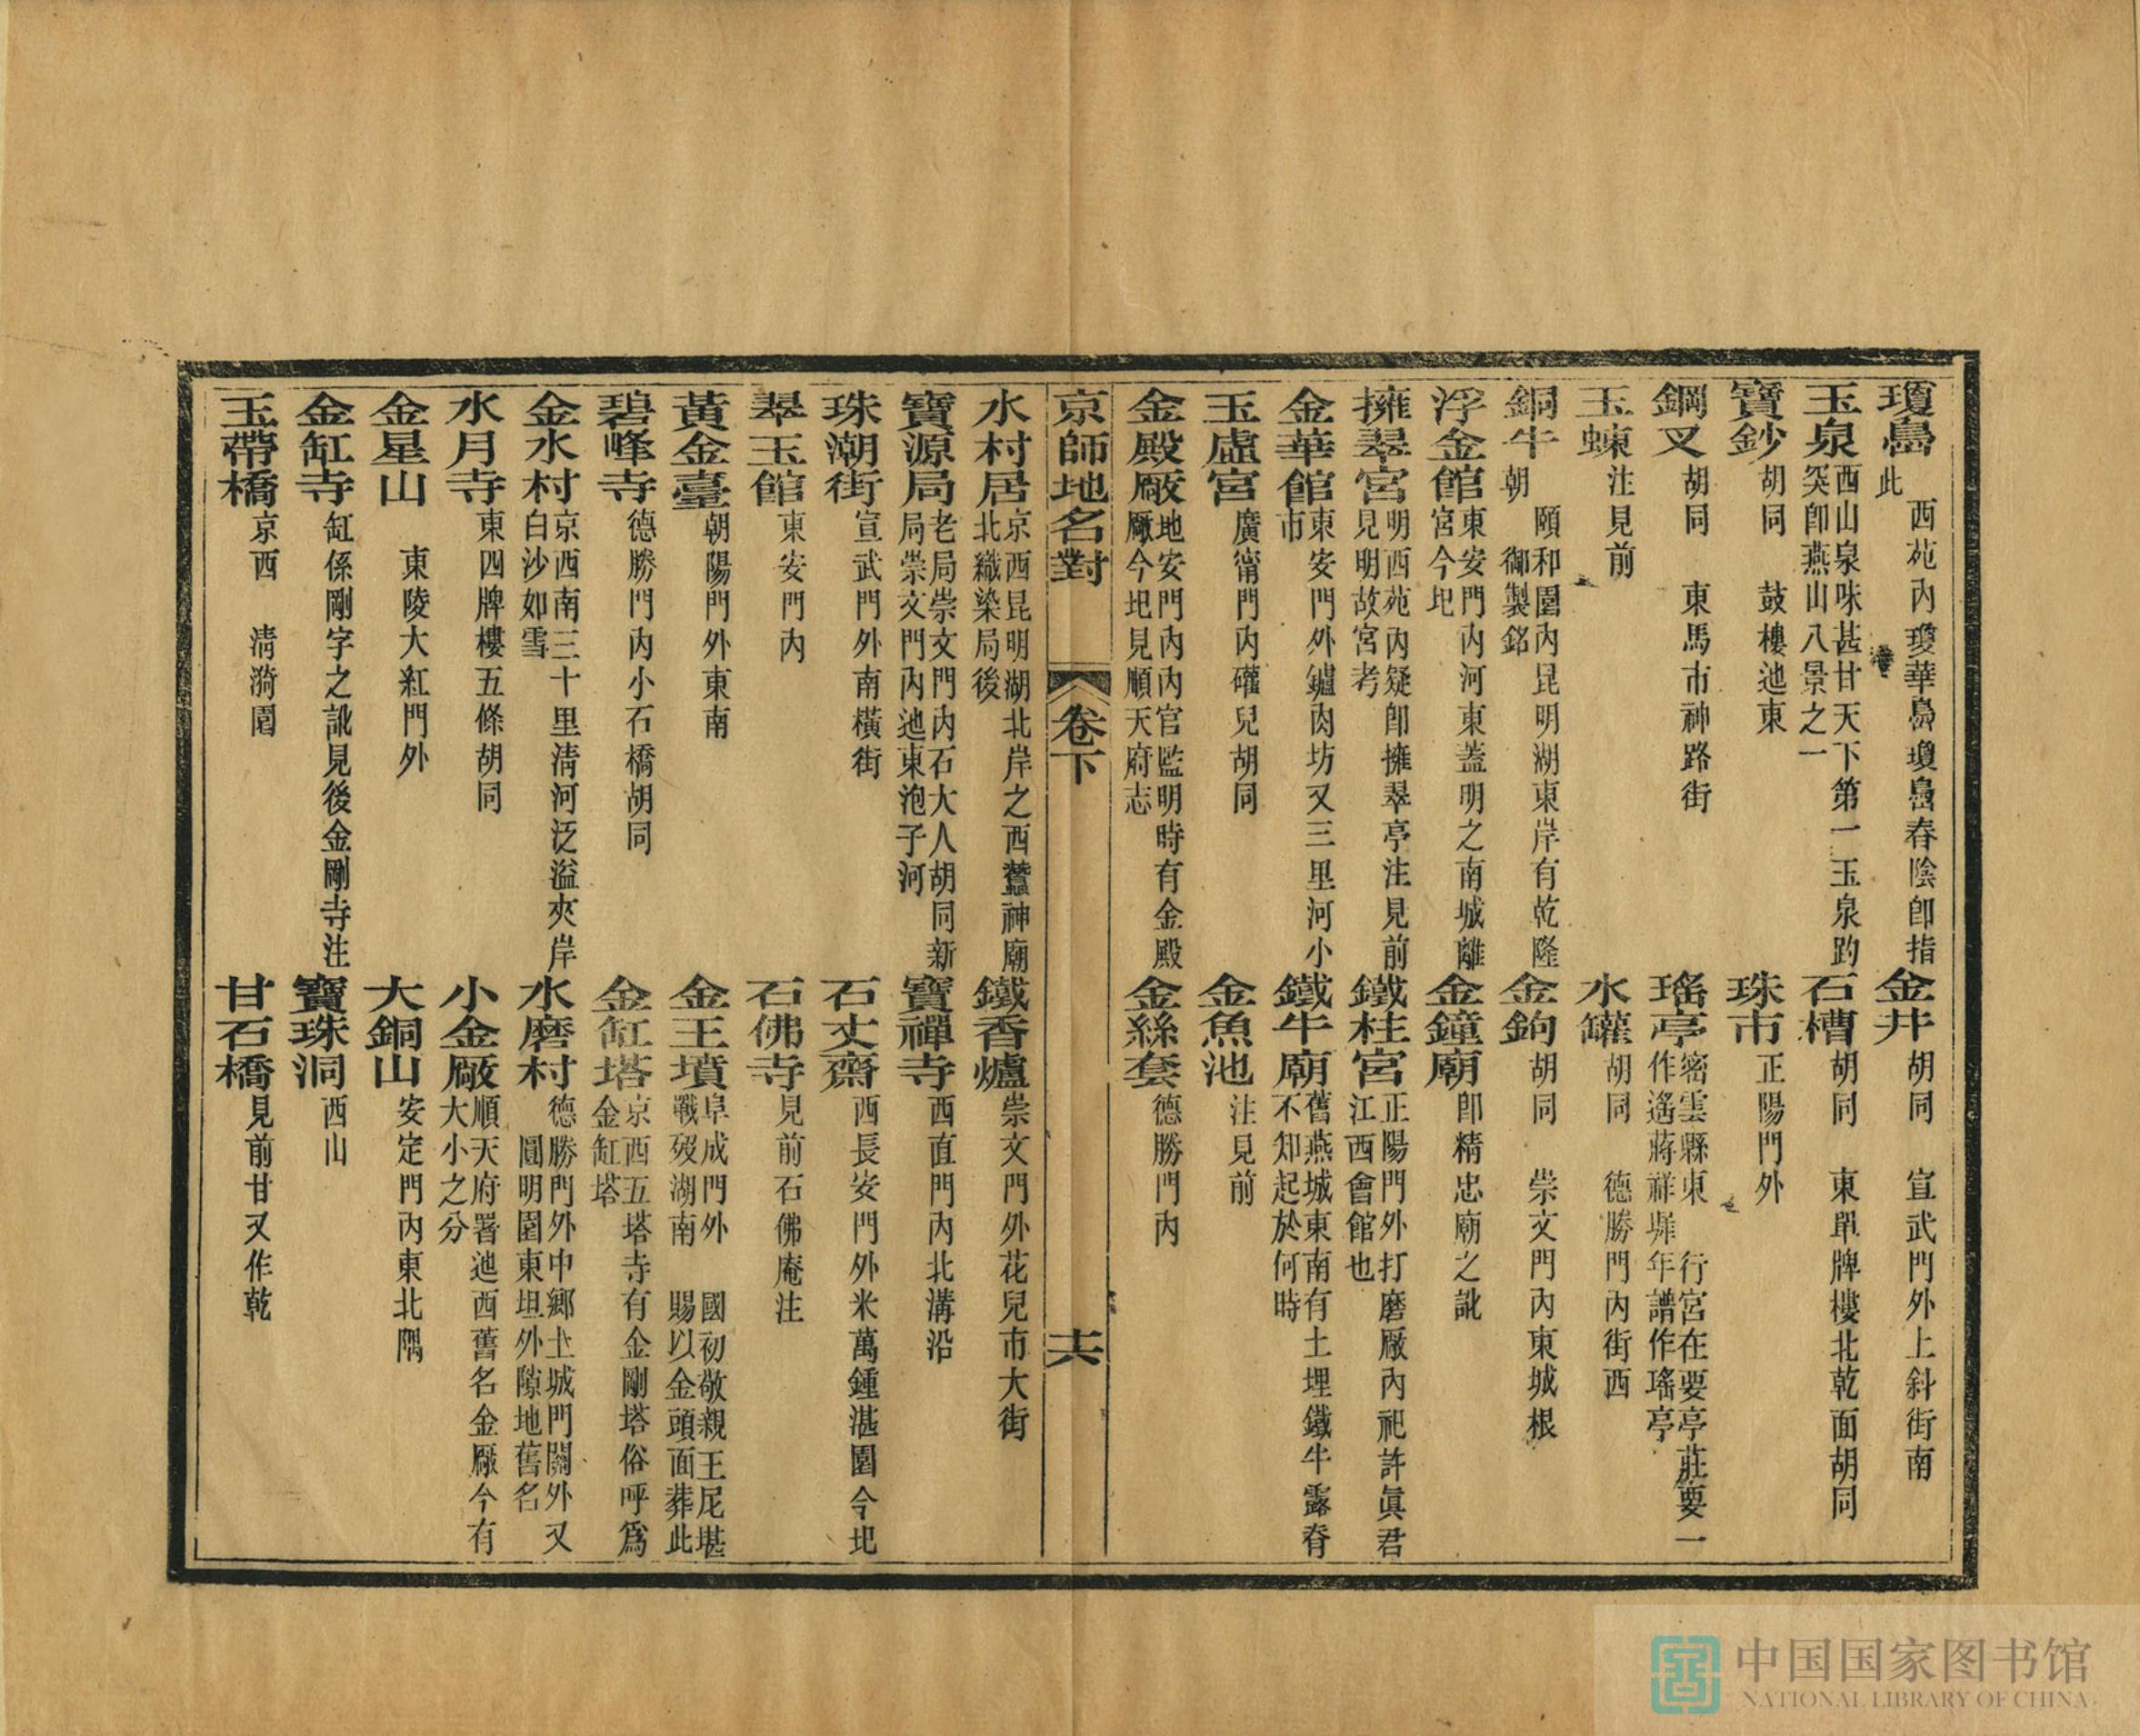 瓊島 西苑內瓊華島瓊島春陰卽指此 金井 胡同 宣武門外上斜街南
玉泉 西山泉味甚甘天下第一玉泉趵突卽燕山八景之一 石槽 胡同 東單牌樓北乾面胡同
寶鈔 胡同 鼓樓迆東 珠市 正陽門外
鋼叉 胡同 東馬市神路街 瑤亭 密雲縣東 行宮在要亭莊要一作遙蔣祥墀年譜作瑤亭
玉蝀 注見前 水罐 胡同 德勝門內街西
銅牛 頤和園內昆明湖東岸有乾隆朝 御製銘 金鉤 胡同 崇文門內東城根
浮金館 東安門內河東蓋明之南城離宮今圯 金鐘廟 卽精忠廟之訛
擁翠宮 明西苑內疑卽擁翠亭注見前見明故宮考 鐵柱宮 正陽門外打磨廠內祀許眞君江西會館也
金華館 東安門外鑪肉坊又三里河小市 鐵牛廟 舊燕城東南有土埋鐵牛露脊不知起於何時
玉虛宮 廣甯門內礶兒胡同 金魚池 注見前
金殿廠 地安門內內官監明時有金殿廠今圯見順天府志 金絲套 德勝門內
京師地名對 卷下 十六
水村居 京西昆明湖北岸之西蠶神廟北織染局後 鐵香爐 崇文門外花兒市大街
寶源局 老局崇文門內石大人胡同新局崇文門內迆東泡子河 寶禪寺 西直門內北溝沿
珠潮街 宣武門外南橫街 石丈齋 西長安門外米萬鍾湛園今圯
翠玉館 東安門內 石佛寺 見前石佛庵注
黃金臺 朝陽門外東南 金王墳 阜成門外 國初敬親王尼堪戰歿湖南 賜以金頭面葬此
碧峰寺 德勝門內小石橋胡同 金缸塔 京西五塔寺有金剛塔俗呼爲金缸塔
金水村 京西南三十里淸河泛溢夾岸白沙如雪 水磨村 德勝門外中鄉土城門關外又圓明園東坦外隙地舊名
水月寺 東四牌樓五條胡同 小金廠 順天府署迆西舊名金廠今有大小之分
金星山 東陵大紅門外 大銅山 安定門內東北隅
金缸寺 缸係剛字之訛見後金剛寺注 寶珠洞 西山
玉帶橋 京西 淸漪園 甘石橋 見前甘又作乾
中国国家图书馆
NATIONAL LIBRARY OF CHINA